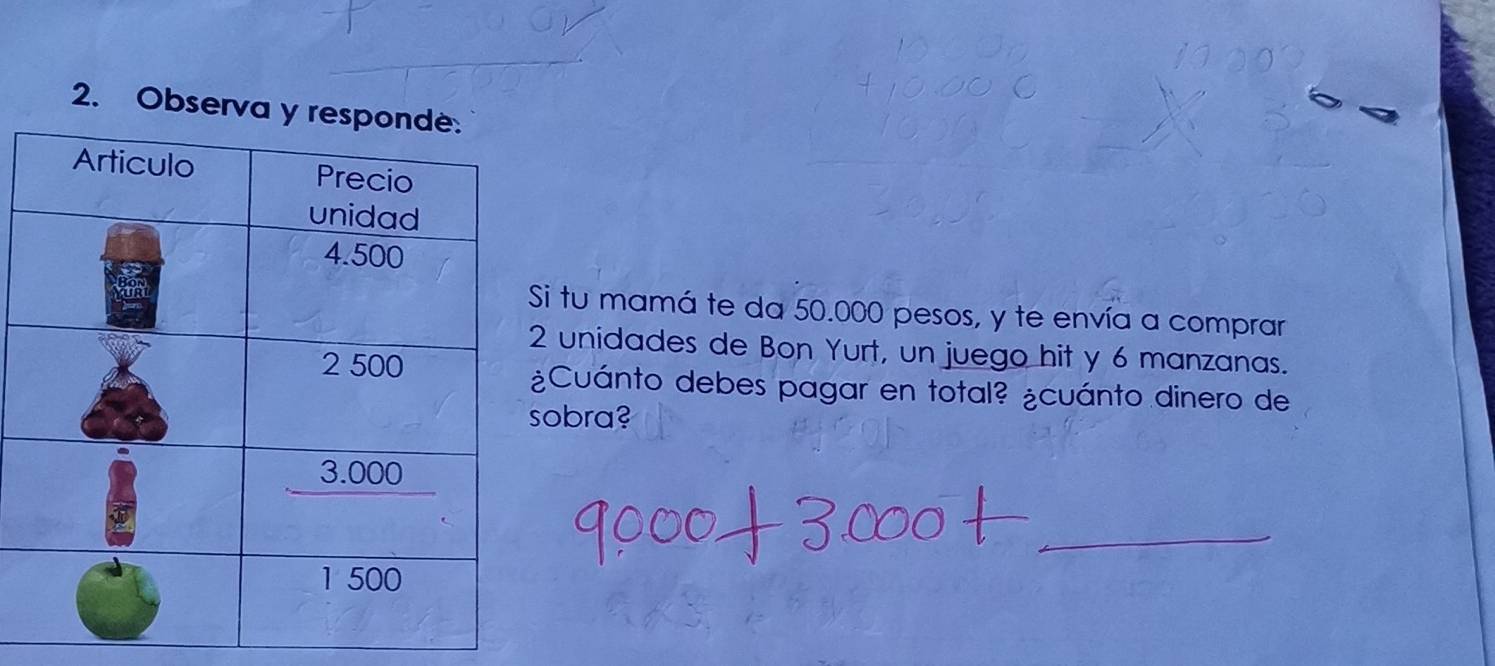 2. Observa y responde:
Articulo Precio unidad
BON YURT 4.500
2 500
3.000
1 500
Si tu mamá te da 50.000 pesos, y te envía a comprar
2 unidades de Bon Yurt, un juego hit y 6 manzanas.
¿Cuánto debes pagar en total? ¿cuánto dinero de
sobra?
9.000 + 3.000 + ______